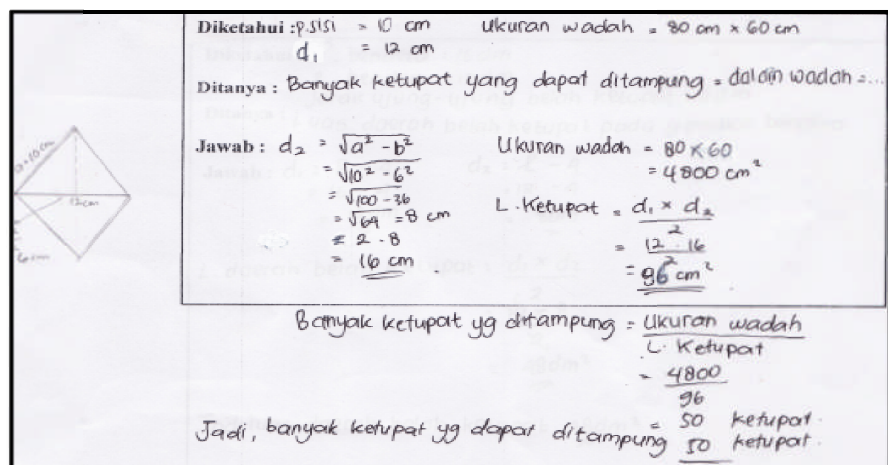 Diketahui : p.sisi = 10 cm Ukuran wadah = 80 cm x 60 cm
d₁ = 12 cm
Ditanya : Banyak ketupat yang dapat ditampung = dalam wadah = ...
Jawab : d₂ = √a² - b²
= √10² - 6²
= √100 - 36
= √64 = 8 cm
= 2 . 8
= 16 cm
Ukuran wadah = 80 x 60
= 4800 cm²
L. Ketupat = d₁ x d₂
2
= 12 . 16
2
= 96 cm²
a=10cm
12cm
6cm
Banyak ketupat yg ditampung = Ukuran wadah
L. Ketupat
= 4800
96
= 50 ketupat.
Jadi, banyak ketupat yg dapat ditampung 50 ketupat.